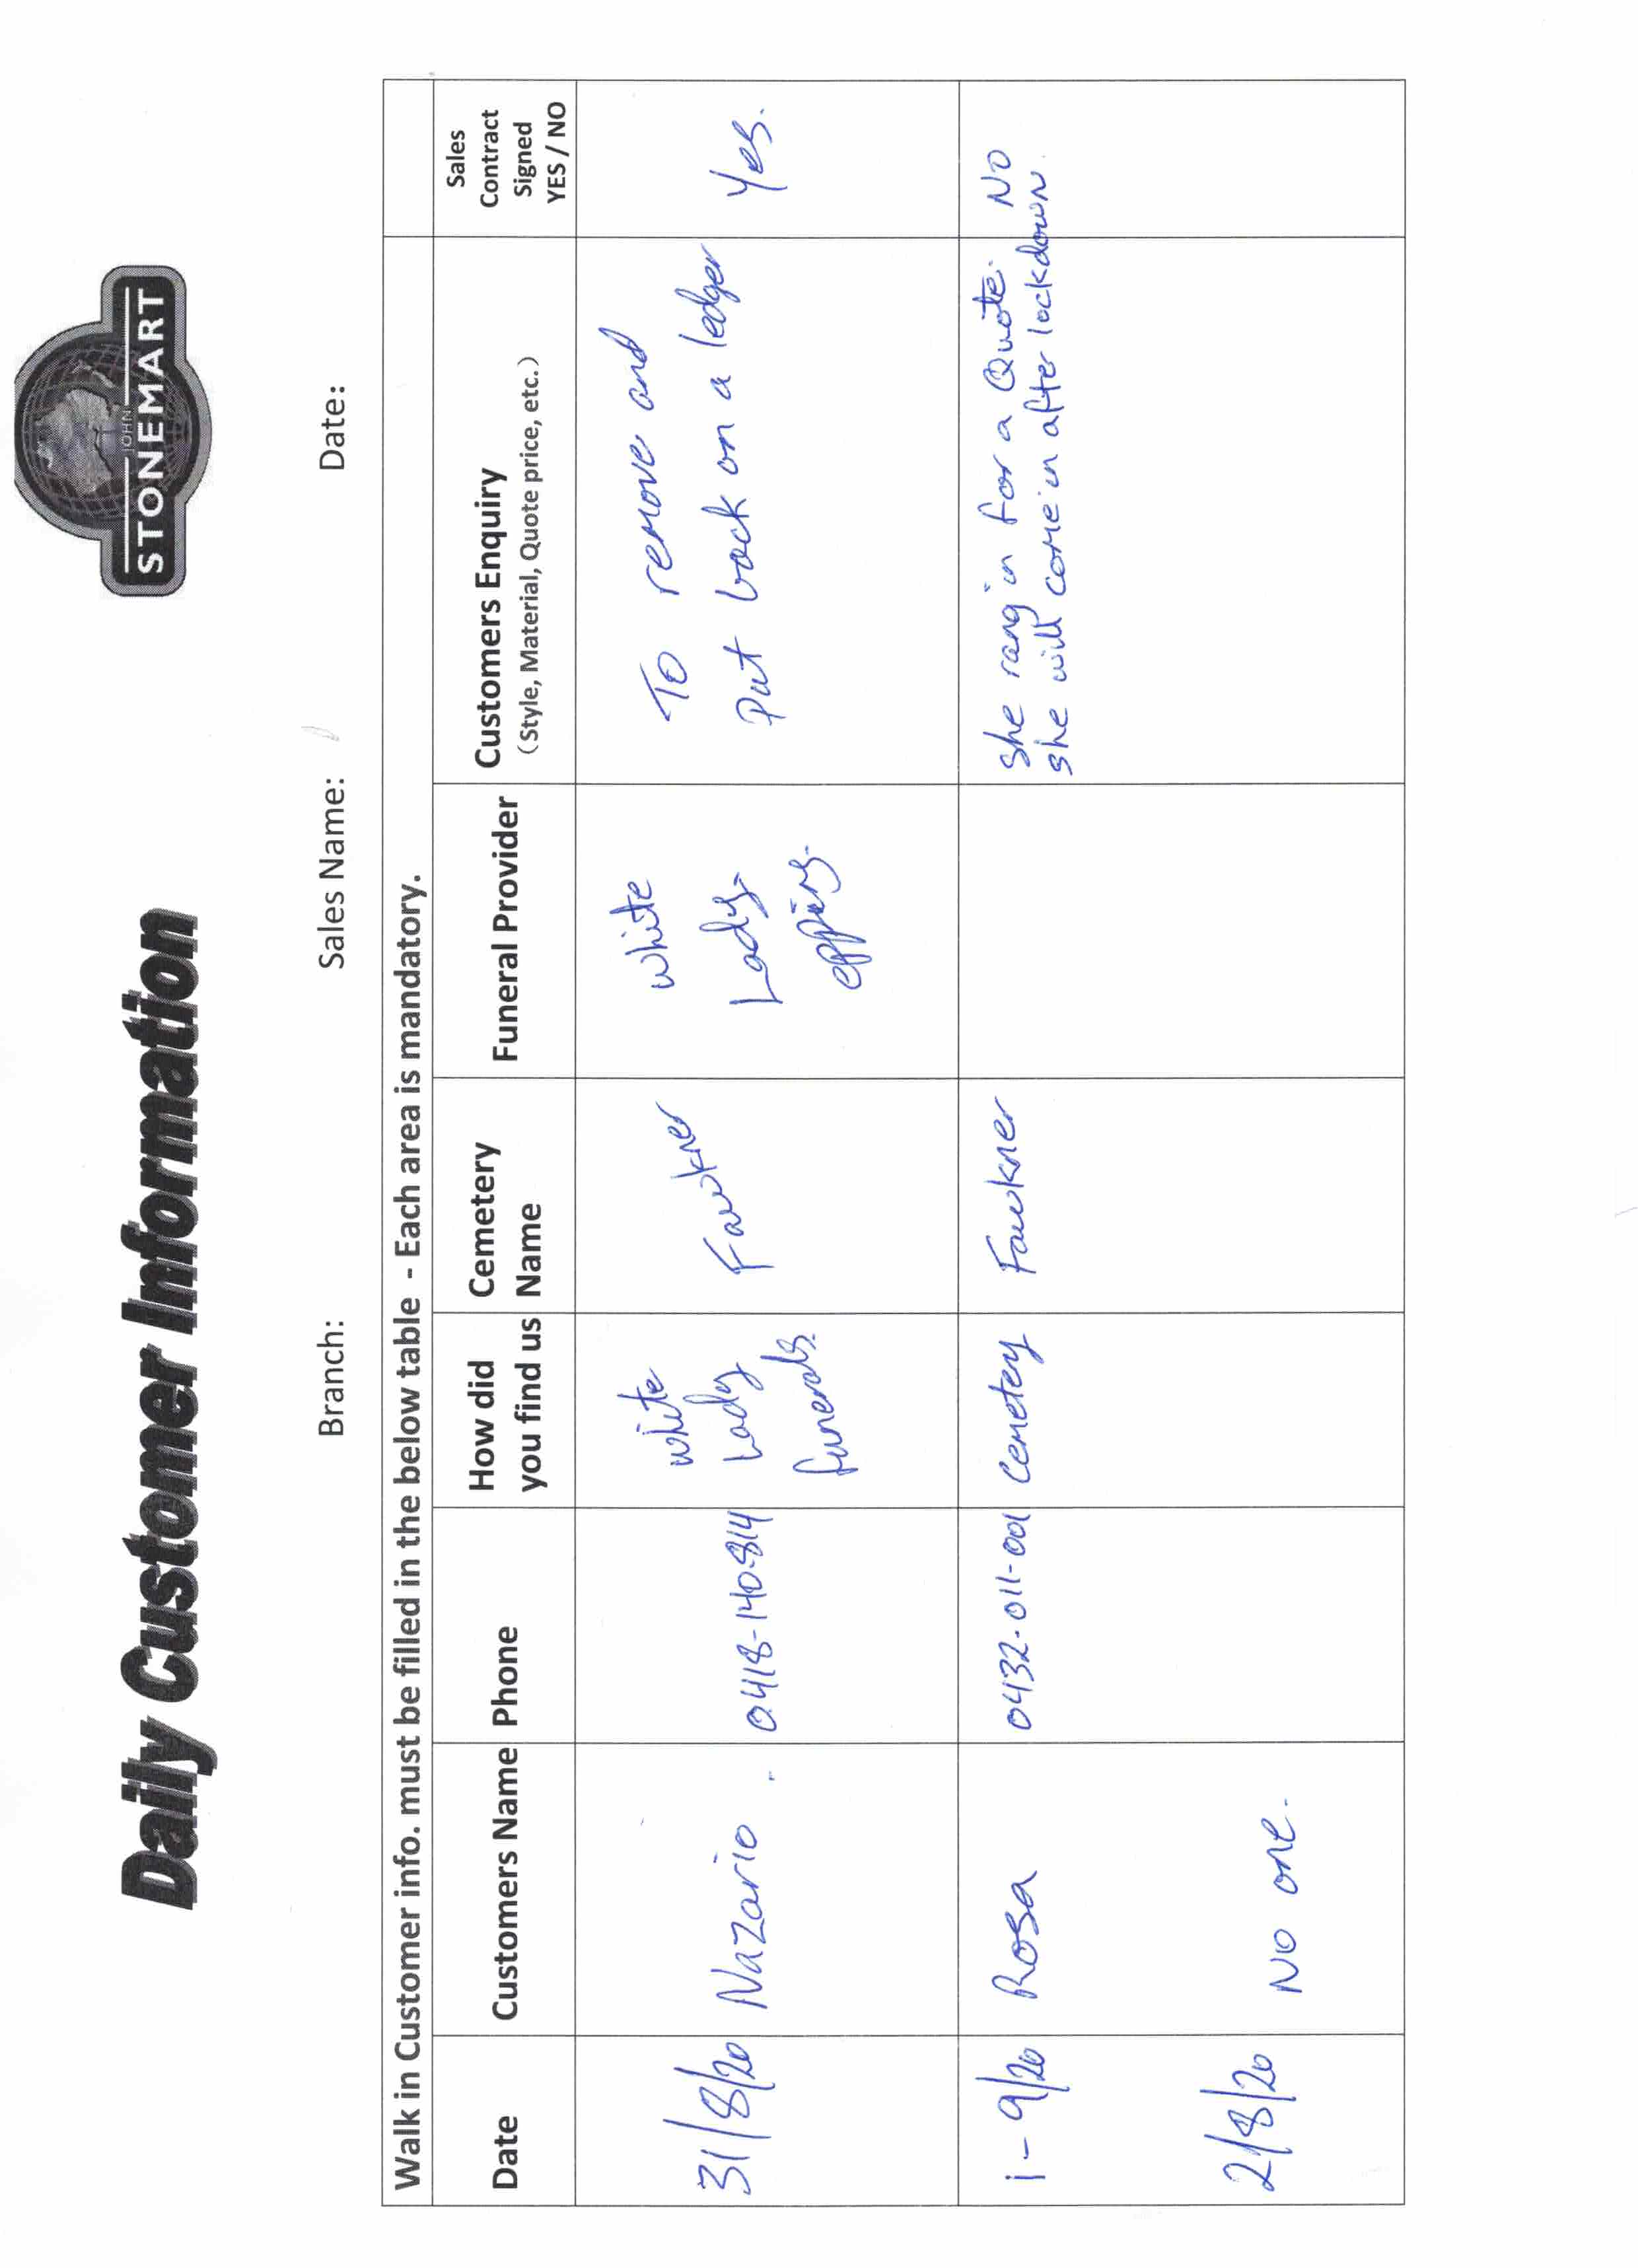 Daily Customer Information
JOHN
STONEMART
Branch: Sales Name: Date:
Walk in Customer info. must be filled in the below table - Each area is mandatory.
Date Customers Name Phone How did you find us Cemetery Name Funeral Provider Customers Enquiry (Style, Material, Quote price, etc.) Sales Contract Signed YES / NO
31/8/20 Nazario. 0418-140-814 white Lady funerals. Fawkner White Lady- epping. To remove and Put back on a ledger Yes.
1-9/20 Rosa 0432-011-001 Cemetery Fawkner She rang in for a Quote. NO
She will come in after lockdown.
2/8/20 No one.